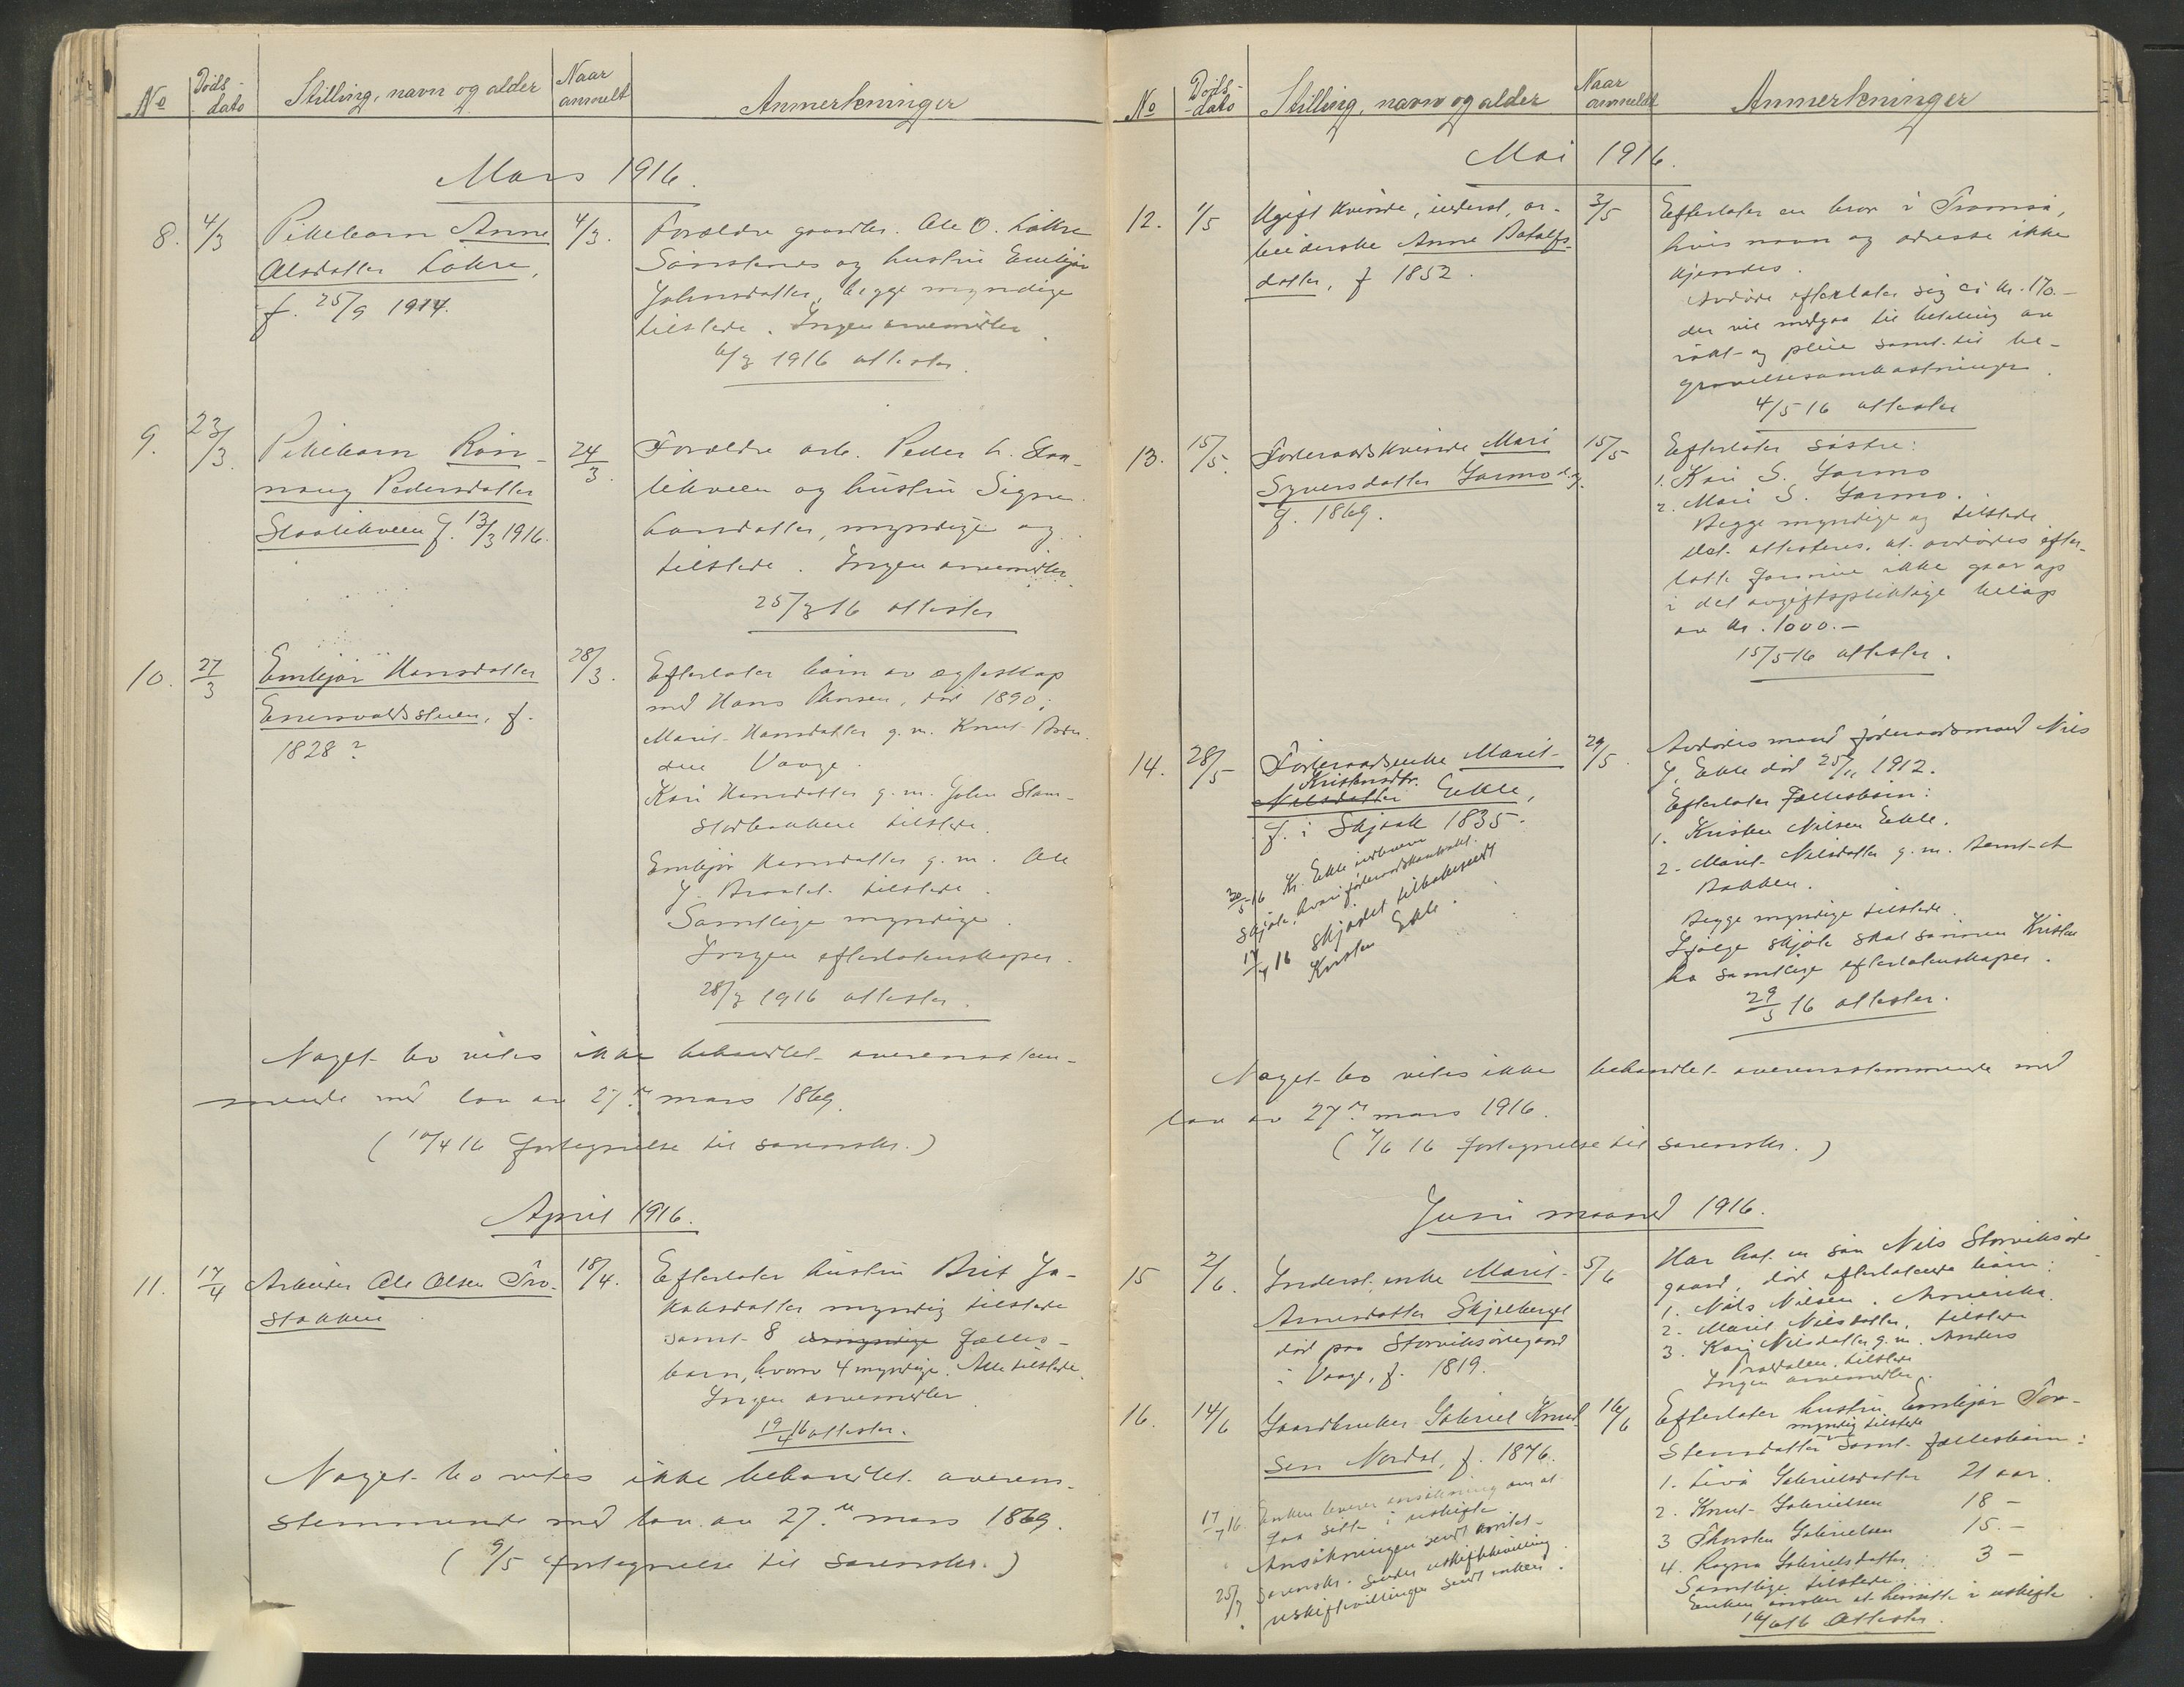 No
Døds-
dato
Stilling, navn og alder
Naar
anmelt
Anmerkninger
Mars 1916.
8. 4/3
Pikebarn Anne
Olsdatter Løkre,
f. 25/9 1914.
4/3.
Forældre gaardbr. Ole O. Løkre
og hustru Embjør
Johnsdatter, begge myndige
tilstede. Ingen arvemidler.
6/3 1916 attester.
9. 23/3.
Pikebarn Røn-
naug Pedersdatter
f. 13/3 1916.
24/3.
Forældre arb. Peder
og hustru Signe
myndige og
tilstede. Ingen arvemidler.
25/3 16 attester
10. 27/3
Embjør Hansdatter
f.
1828?
28/3.
Efterlater barn av egteskap
med Hans død 1890;
Marit Hansdatter g. m. Knut
Vaage.
Kari Hansdatter g. m. John
tilstede.
Embjør Hansdatter g. m. Ole
tilstede.
Samtlige myndige.
Ingen efterlatenskaper.
28/3 1916 attester.
Noget bo vites ikke behandlet overensstem-
mende med lov av 27de mars 1869.
(10/4 16 fortegnelse til sorenskr.)
April 1916.
11. 17/4
Arbeider Ole Olsen Tro-
stakken
18/4.
Efterlater hustru Brit Ja-
kobsdatter myndig tilstede
samt 8 umyndige fælles-
barn, hvorav 4 myndige. Alle tilstede.
Ingen arvemidler
19/4 16 attester.
Noget bo vites ikke behandlet overens-
stemmende med lov av 27de mars 1869.
(9/5 fortegnelse til sorenskr.)
No
Døds-
dato
Stilling, navn og alder
Naar
anmeldt
Anmerkninger
Mai 1916.
12. 1/5
Ugift kvinde, inderst, ar-
beiderske Anne Botolfs-
datter, f 1852.
3/5
Efterlater en bror i Tromsø,
hvis navn og adresse ikke
kjendes.
Avdøde efterlater sig ca kr. 170.-
der vil medgaa til betaling av
røkt og pleie samt til be-
gravelsesomkostninger.
4/5 16 attester
13. 15/5.
Føderaadskvinde Mari
Syversdatter Jarmo
f. 1869.
15/5
Efterlater søstre:
1. Kari S. Jarmo
2. Mari S. Jarmo.
Begge myndige og tilstede
Det attesteres, at avdødes efter-
latte formue ikke gaar op
i det avgiftspliktige beløp
av kr. 1000.-
15/5 16 attester.
14. 28/5
Føderaadsenke Marit
Kristensdtr.
Nilsdatter Ekle,
f. i Skjaak 1835.
30/5 16 Kr. Ekle indlevere
skjøte, hvori føderaadskontrakt.
17/7 16 skjødet tilbakesendt
Kristen Ekle.
29/5.
Avdødes mand føderaadsmand Nils
J. Ekle død 25/11 1912.
Efterlater fællesbarn:
1. Kristen Nilsen Ekle.
2. Marit Nilsdatter g. m.
Bakken.
Begge myndige tilstede.
Ifølge skjøte skal sønnen Kristen
ha samtlige efterlatenskaper.
29/5 16 attester.
Noget bo vites ikke behandlet overensstemmende med
lov av 27de mars 1916.
(7/6 16 fortegnelse til sorenskr.)
Juni maaned 1916.
15 2/6.
Inderst enke Marit
Arnesdatter Skjelberget
død paa Storviksøregaard
i Vaage, f. 1819.
5/6
Har hat en søn Nils Storviksøre
gaard, død efterlatende barn:
1. Nils Nilsen. Amerika.
2. Marit Nilsdatter, tilstede
3. Kari Nilsdatter g. m. Anders
tilstede
Ingen arvemidler.
16. 14/6
Gaardbruker Gabriel Knud-
sen Nordal, f. 1876.
17/7 16 Enken leverer ansøkning om at
faa sitte i uskifte
Ansøkningen sendt
25/7 sorenskr. sender uskiftebevilling
uskiftevillingen sendt enken.
16/6
Efterlater hustru Embjør Tor-
myndig tilstede
stensdatter samt fællesbarn:
1. Livø Gabrielsdatter 21 aar.
2. Knut Gabrielsen 18 -
3 Thorsten Gabrielsen 15. -
4. Ragna Gabrielsdatter 3 -
Samtlige tilstede.
Enken ønsker at hensitte i uskifte
16/6 16 Attester.